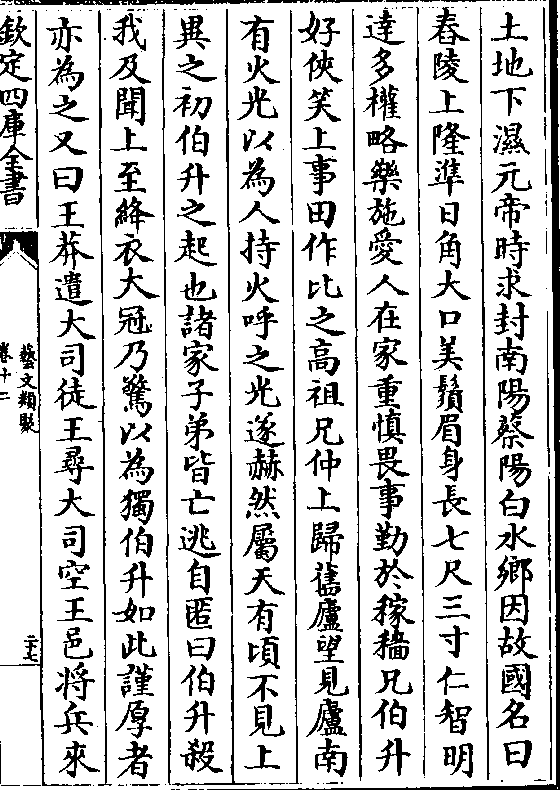 土地下濕元帝時求封南陽蔡陽白水鄉因故國名曰
舂陵上隆準日角大口美鬚眉身長七尺三寸仁智明
達多權略樂施愛人在家重慎畏事勤於稼穡兄伯升
好俠笑上事田作比之高祖兄仲上歸舊廬望見廬南
有火光以為人持火呼之光遂赫然屬天有頃不見上
異之初伯升之起也諸家子弟皆亡逃自匿曰伯升殺
我及聞上至絳衣大冠乃驚以為獨伯升如此謹厚者
亦為之又曰王莽遣大司徒王尋大司空王邑將兵來
欽定四庫全書
藝文類聚
卷十二
二十七